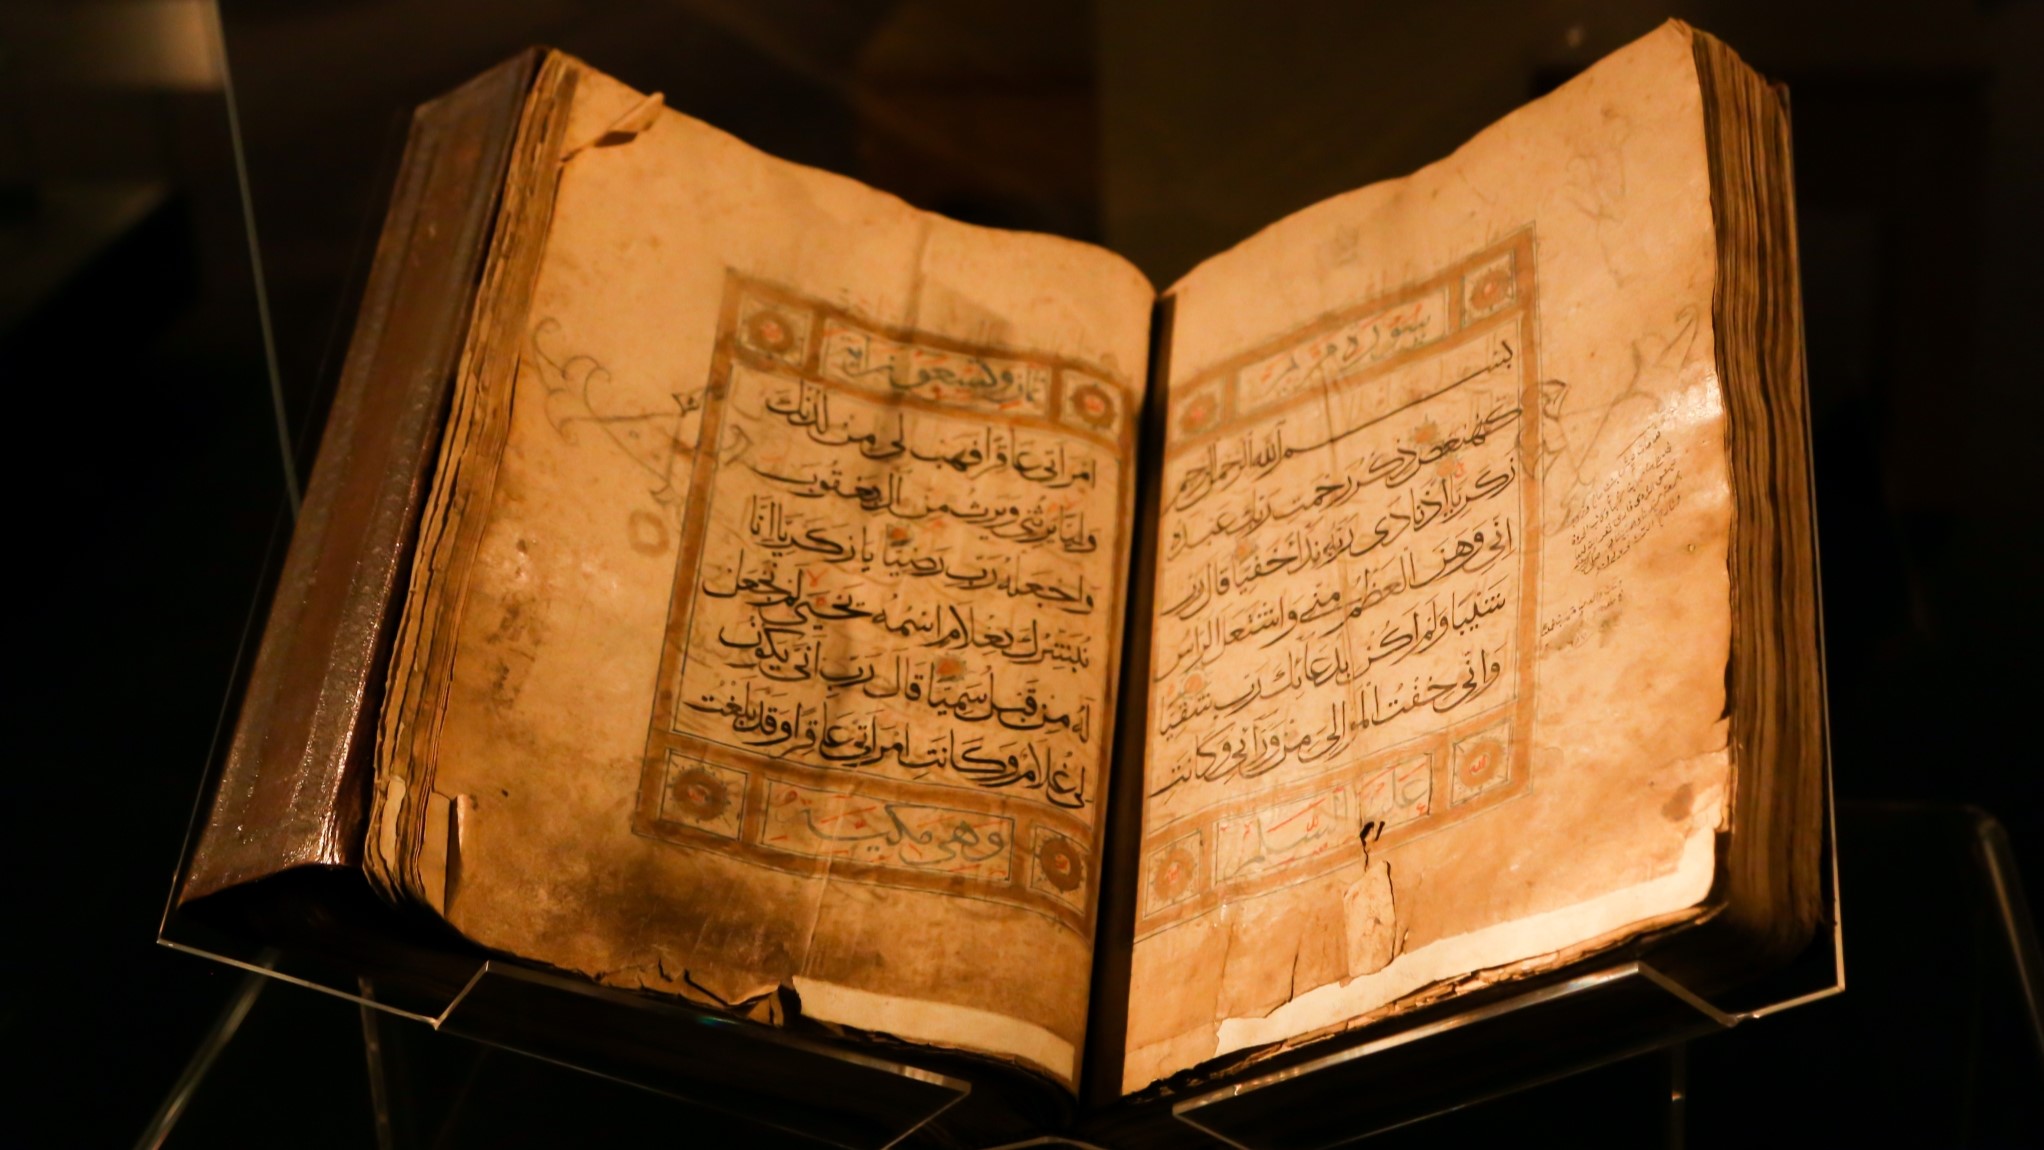 سورة مريم
بسم الله الرحمن الرحيم
كهيعص ذكر رحمت ربك عبده
زكريا إذ نادى ربه نداء خفيا قال رب
اني وهن العظم مني واشتعل الراس
شيبا ولم اكن بدعائك رب شقيا
واني خفت الموالي من ورآئي وكانت
عليها السلم
ثمان وتسعون اية
امراتي عاقرا فهب لي من لدنك
وليا يرثني ويرث من آل يعقوب
واجعله رب رضيا يا زكريا انا
نبشرك بغلام اسمه يحيى لم نجعل
له من قبل سميا قال رب انى يكون
لي غلام وكانت امراتي عاقرا وقد بلغت
وهي مكية